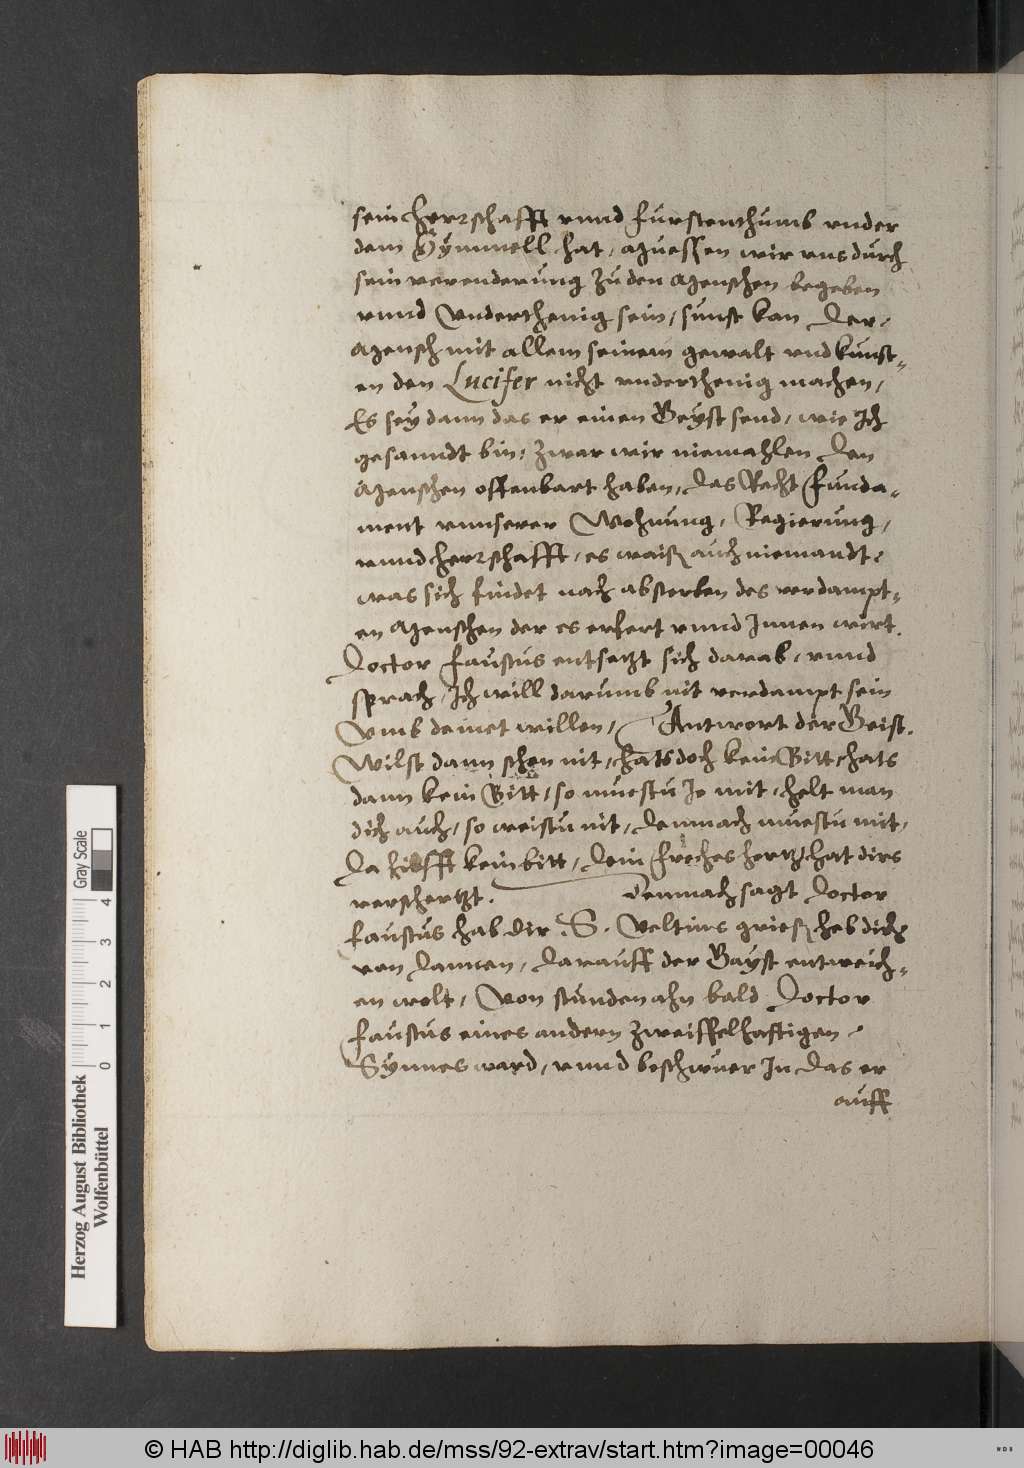 sein herrschafft vnnd furstenthumb vnder
dem Hymmell hat, muessen wir vns durch
sein verenderung zu den Menschen begeben
vnnd Vnderthenig sein, sunst kan der,
Mensch mit allem seinem gewalt vnd kunst-
en den Lucifer nicht vnderthenig machen,
Es sey dann das er einen Geyst send, wie Ich
gesanndt bin, zwar wir niemahlen den
Menschen offenbart haben, das Recht funda-
ment vnnserer Wohnung, Regierung,
vnnd herrschafft, es waiß auch niemandt,
was sich findet nach absterben des verdampt-
en Menschen der es erfert vnnd Innen wirt.
Doctor Faustus entsetzt sich darab, vnnd
sprach, Ich will darumb nit verdampt sein
Vmb deinet willen, Antwort der Geist.
Wilst dann schon nit, hats doch kein Bitt, hats
dann kein Bitt, so muestu Je mit, helt man
dich auch, so weistu nit, dennach muestu mit,
da hilfft kein bitt, dein freches hertz hat dirs
verschertzt. Dennach sagt Doctor
Faustus hab dir S. Veltins grieß heb dich
von dannen, darauff der Gayst entweich-
en wolt, Von stunden ahn bald Doctor
Faustus eines andern zweiffelhafftigen
Synnes ward, vnnd beschwuer In das er
auff
Herzog August Bibliothek
Wolfenbüttel
0 1 2 3 4
Gray Scale
© HAB http://diglib.hab.de/mss/92-extrav/start.htm?image=00046
WDB